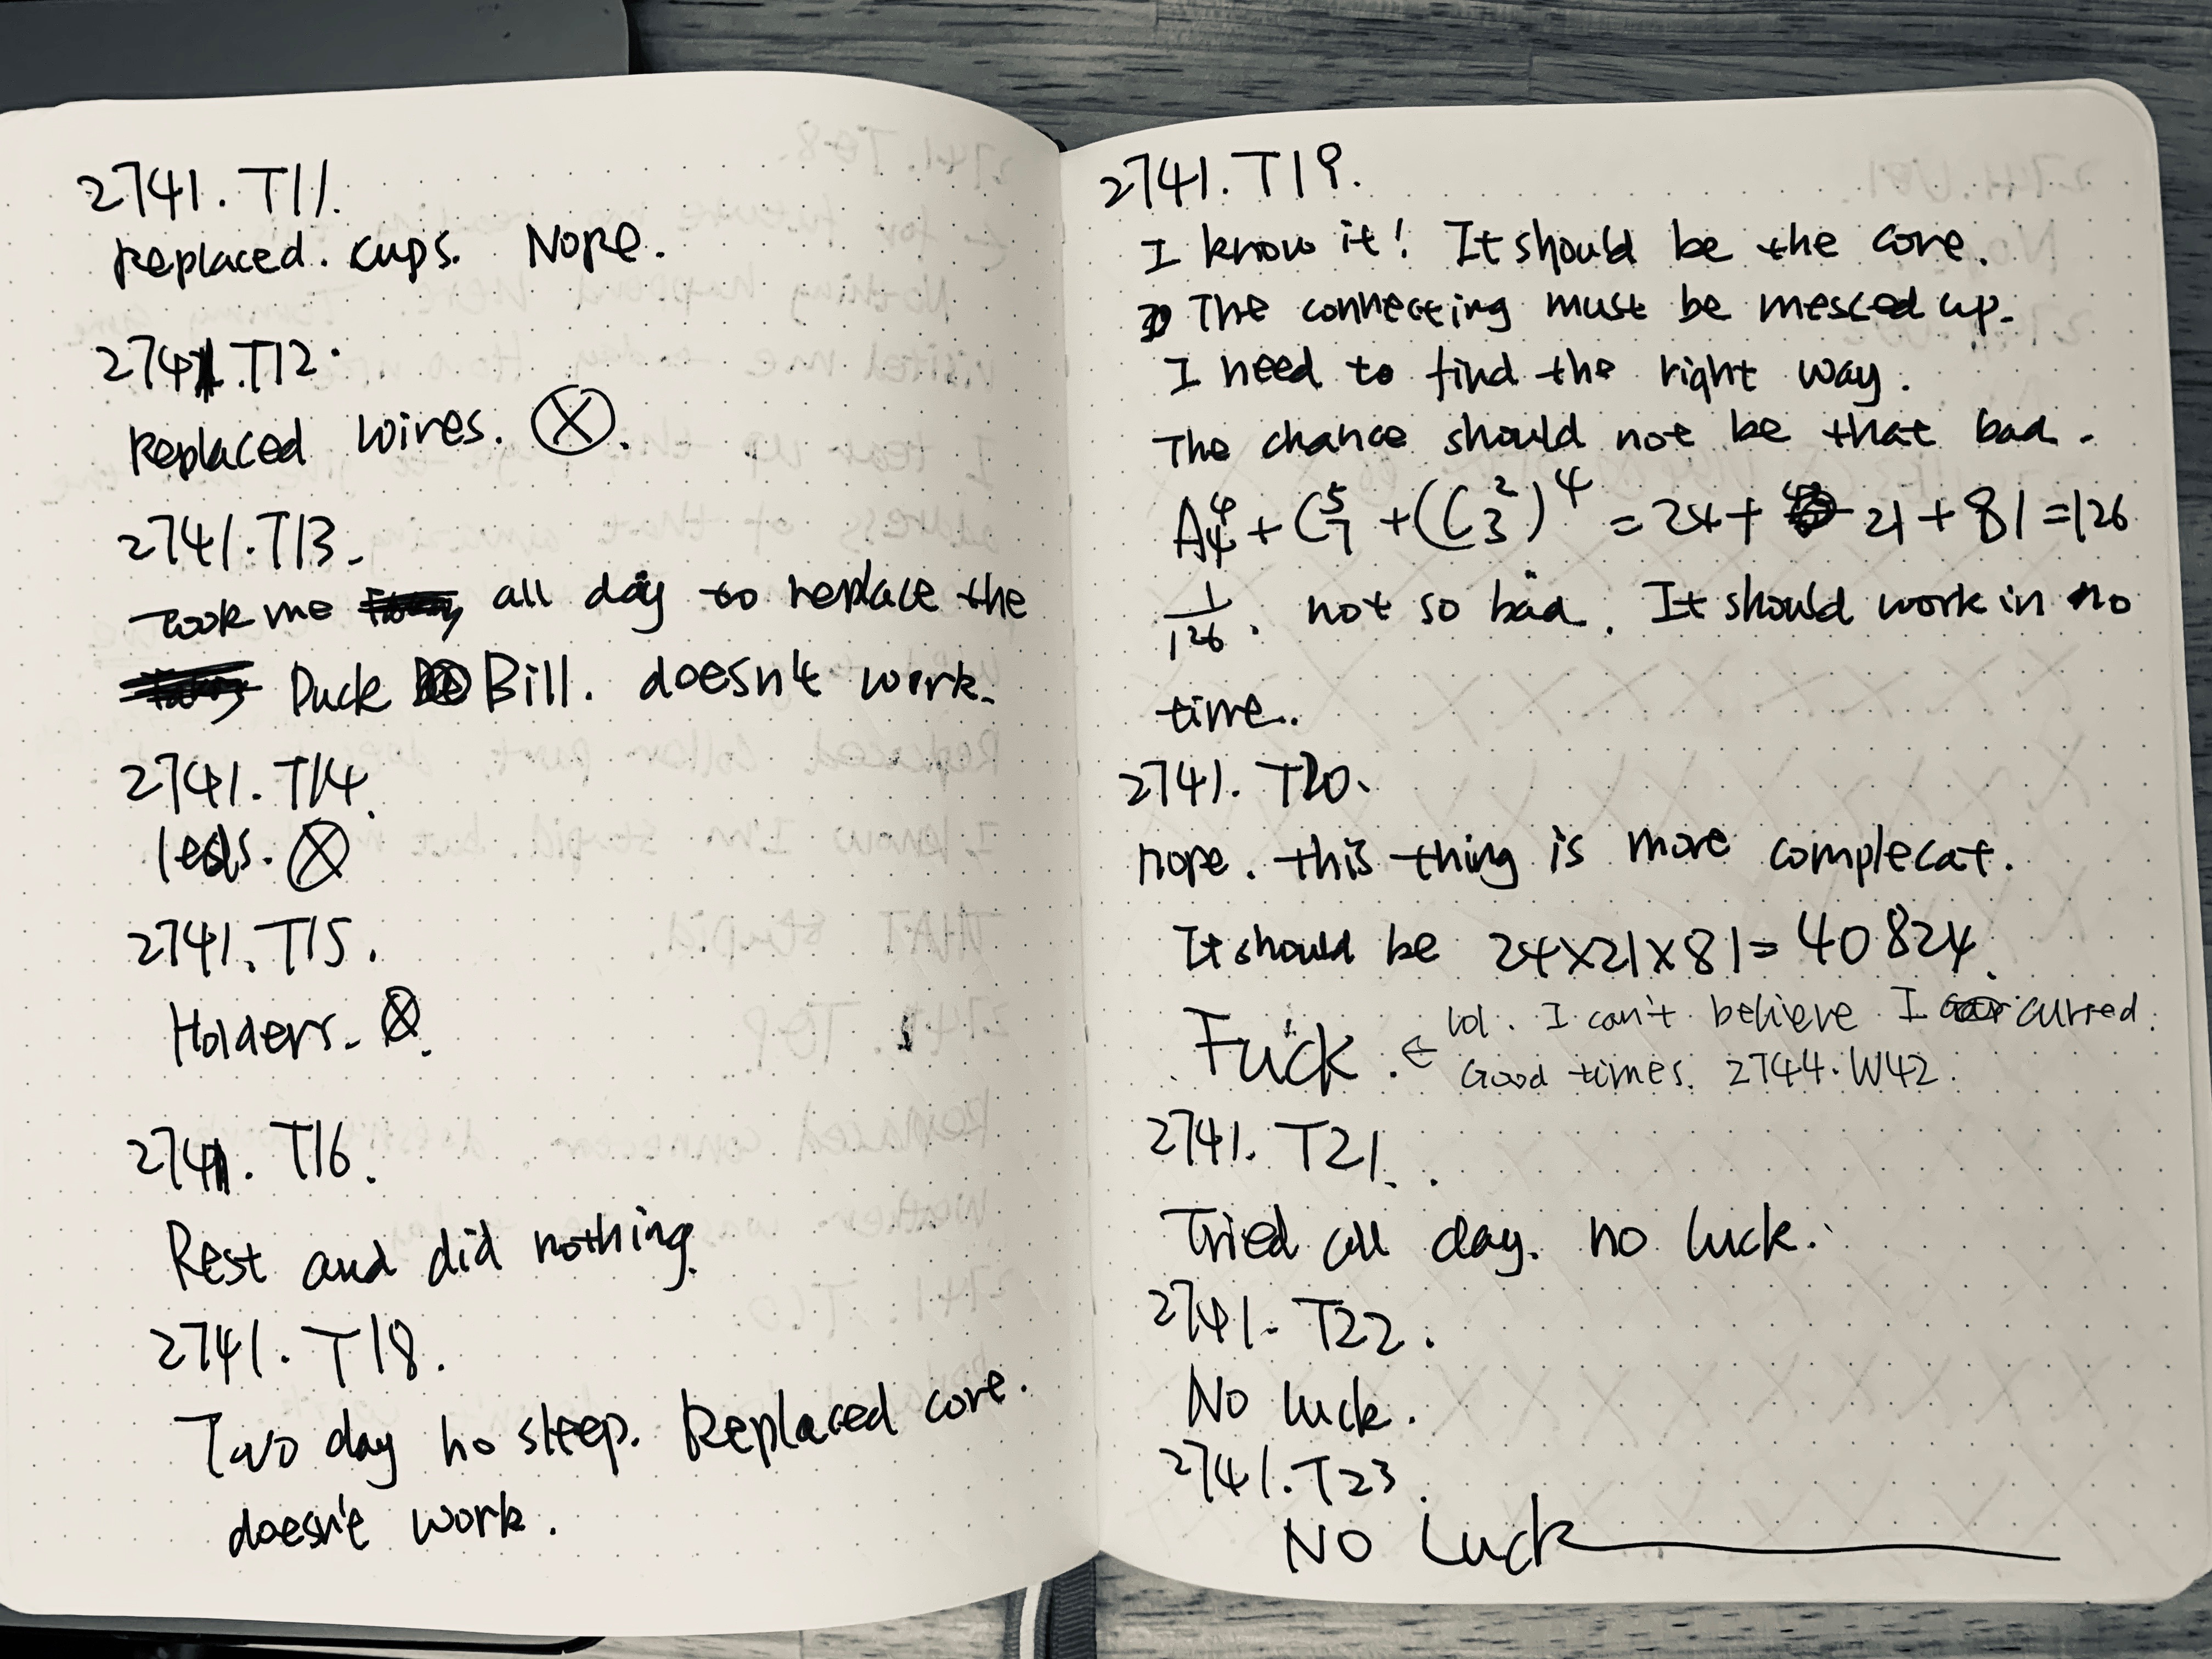 2741.T11.
Replaced. cups. Nope.
2741.T12.
Replaced wires. ⊗.
2741.T13.
Took me all day to replace the
Duck Bill. doesn't work.
2741.T14.
leds. ⊗
2741.T15.
Holders. ⊗.
2741.T16.
Rest and did nothing.
2741.T18.
Two day no sleep. Replaced core.
doesn't work.
2741.T19.
I know it! It should be the core.
The connecting must be messed up.
I need to find the right way.
The chance should not be that bad.
A⁴₄ + C⁵₇ + (C²₃)⁴ = 24 + 21 + 81 = 126
1/126. not so bad. It should work in no
time..
2741. T20.
nope. this thing is more complecat.
It should be 24×21×81=40824.
Fuck. ← lol. I can't believe I cursed.
Good times. 2744.W42.
2741. T21.
Tried all day. no luck.
2741. T22.
No luck.
2741.T23.
No Luck